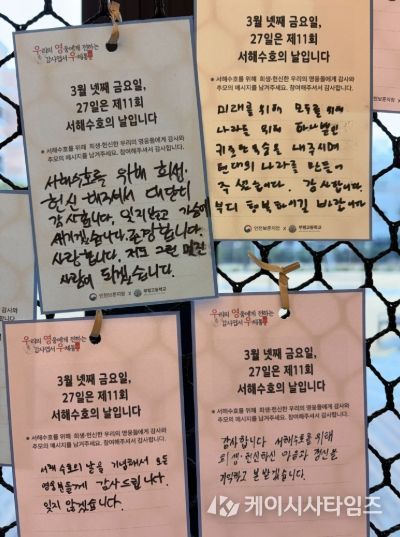 우리의 영웅에게 전하는
감사엽서 우체통
3월 넷째 금요일,
27일은 제11회
서해수호의 날입니다
※ 서해수호를 위해 희생·헌신한 우리의 영웅들에게 감사와
추모의 메시지를 남겨주세요. 참여해주셔서 감사합니다.
서해수호를 위해 희생,
헌신 해주셔서 대단히
감사합니다. 잊지않고 가슴에
새기겠습니다. 존경합니다.
사랑합니다. 저도 그런 멋진
사람이 되겠습니다.
인천보훈지청 X 부평고등학교
3월 넷째 금요일,
27일은 제11회
서해수호의 날입니다
※ 서해수호를 위해 희생·헌신한 우리의 영웅들에게 감사와
추모의 메시지를 남겨주세요. 참여해주셔서 감사합니다.
미래를 위해 모두를 위해
나라를 위해 하나뿐인
귀중한 목숨을 내주시며
현대의 나라를 만들어
주셨습니다. 감사합니다.
부디 행복하시길 바랍니다
인천보훈지청 X 부평고등학교
우리의 영웅에게 전하는
감사엽서 우체통
3월 넷째 금요일,
27일은 제11회
서해수호의 날입니다
※ 서해수호를 위해 희생·헌신한 우리의 영웅들에게 감사와
추모의 메시지를 남겨주세요. 참여해주셔서 감사합니다.
서해 수호의 날을 기념해서 모든
영웅분들게 감사드립니다.
잊지 않겠습니다.
우리의 영웅에게 전하는
감사엽서 우체통
3월 넷째 금요일,
27일은 제11회
서해수호의 날입니다
※ 서해수호를 위해 희생·헌신한 우리의 영웅들에게 감사와
추모의 메시지를 남겨주세요. 참여해주셔서 감사합니다.
감사합니다 서해수호를 위해
희생·헌신하신 마음과 정신을
기억하고 본받겠습니다.
케이시사타임즈